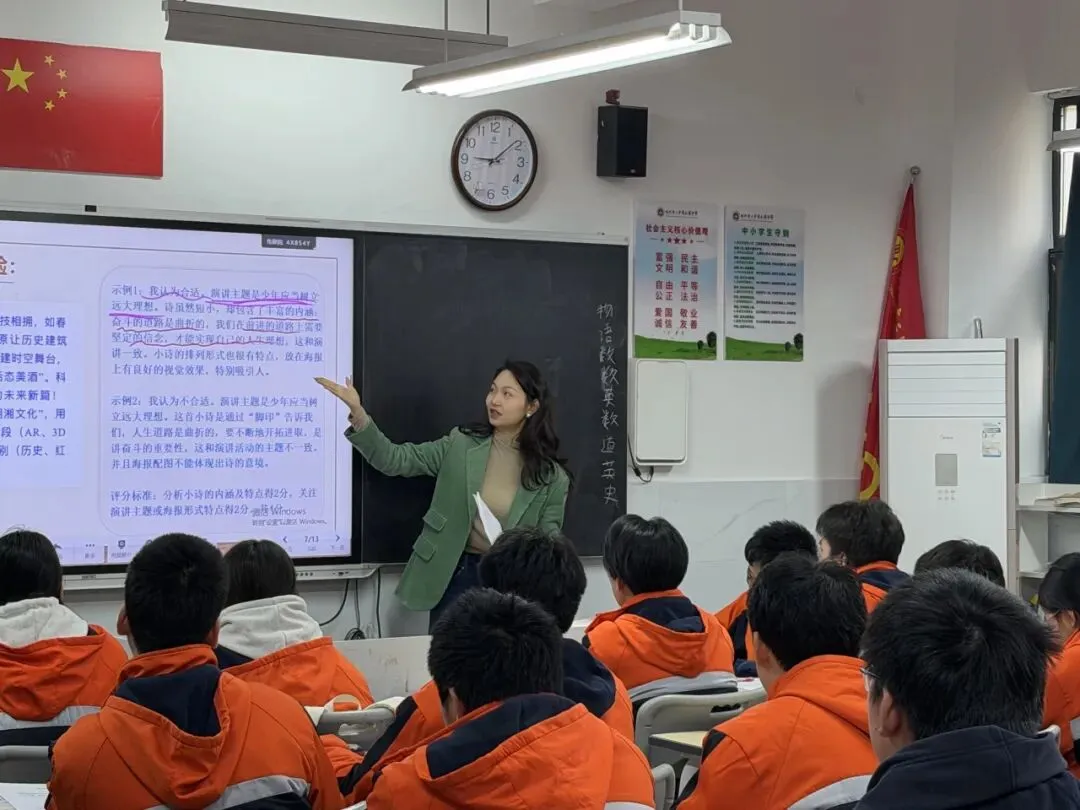 检：
技相拥，如春
原让历史建筑
建时空舞台，
活态美酒”。科
的未来新篇！
湖湘文化”，用
段（AR、3D
别（历史、红
示例1：我认为合适。演讲主题是少年应当树立
远大理想。诗虽然短小，却包含了丰富的内涵：
奋斗的道路是曲折的，我们在前进的道路上需要
坚定的信念，才能实现自己的人生理想，这和演
讲一致。小诗的排列形式也很有特点，放在海报
上有良好的视觉效果，特别吸引人。
示例2：我认为不合适。演讲主题是少年应当树
立远大理想。这首小诗是通过“脚印”告诉我
们，人生道路是曲折的，要不断地开拓进取，是
讲奋斗的重要性，这和演讲活动的主题不一致。
并且海报配图不能体现出诗的意境。
评分标准：分析小诗的内涵及特点得2分，关注
演讲主题或海报形式特点得2分。
激活 Windows
转到“设置”以激活 Windows。
7/13
4X854Y
12
1
2
3
4
5
6
7
8
9
10
11
物语数数英数道英史
社会主义核心价值观
富强 民主
文明 和谐
自由 平等
公正 法治
爱国 敬业
诚信 友善
中小学生守则